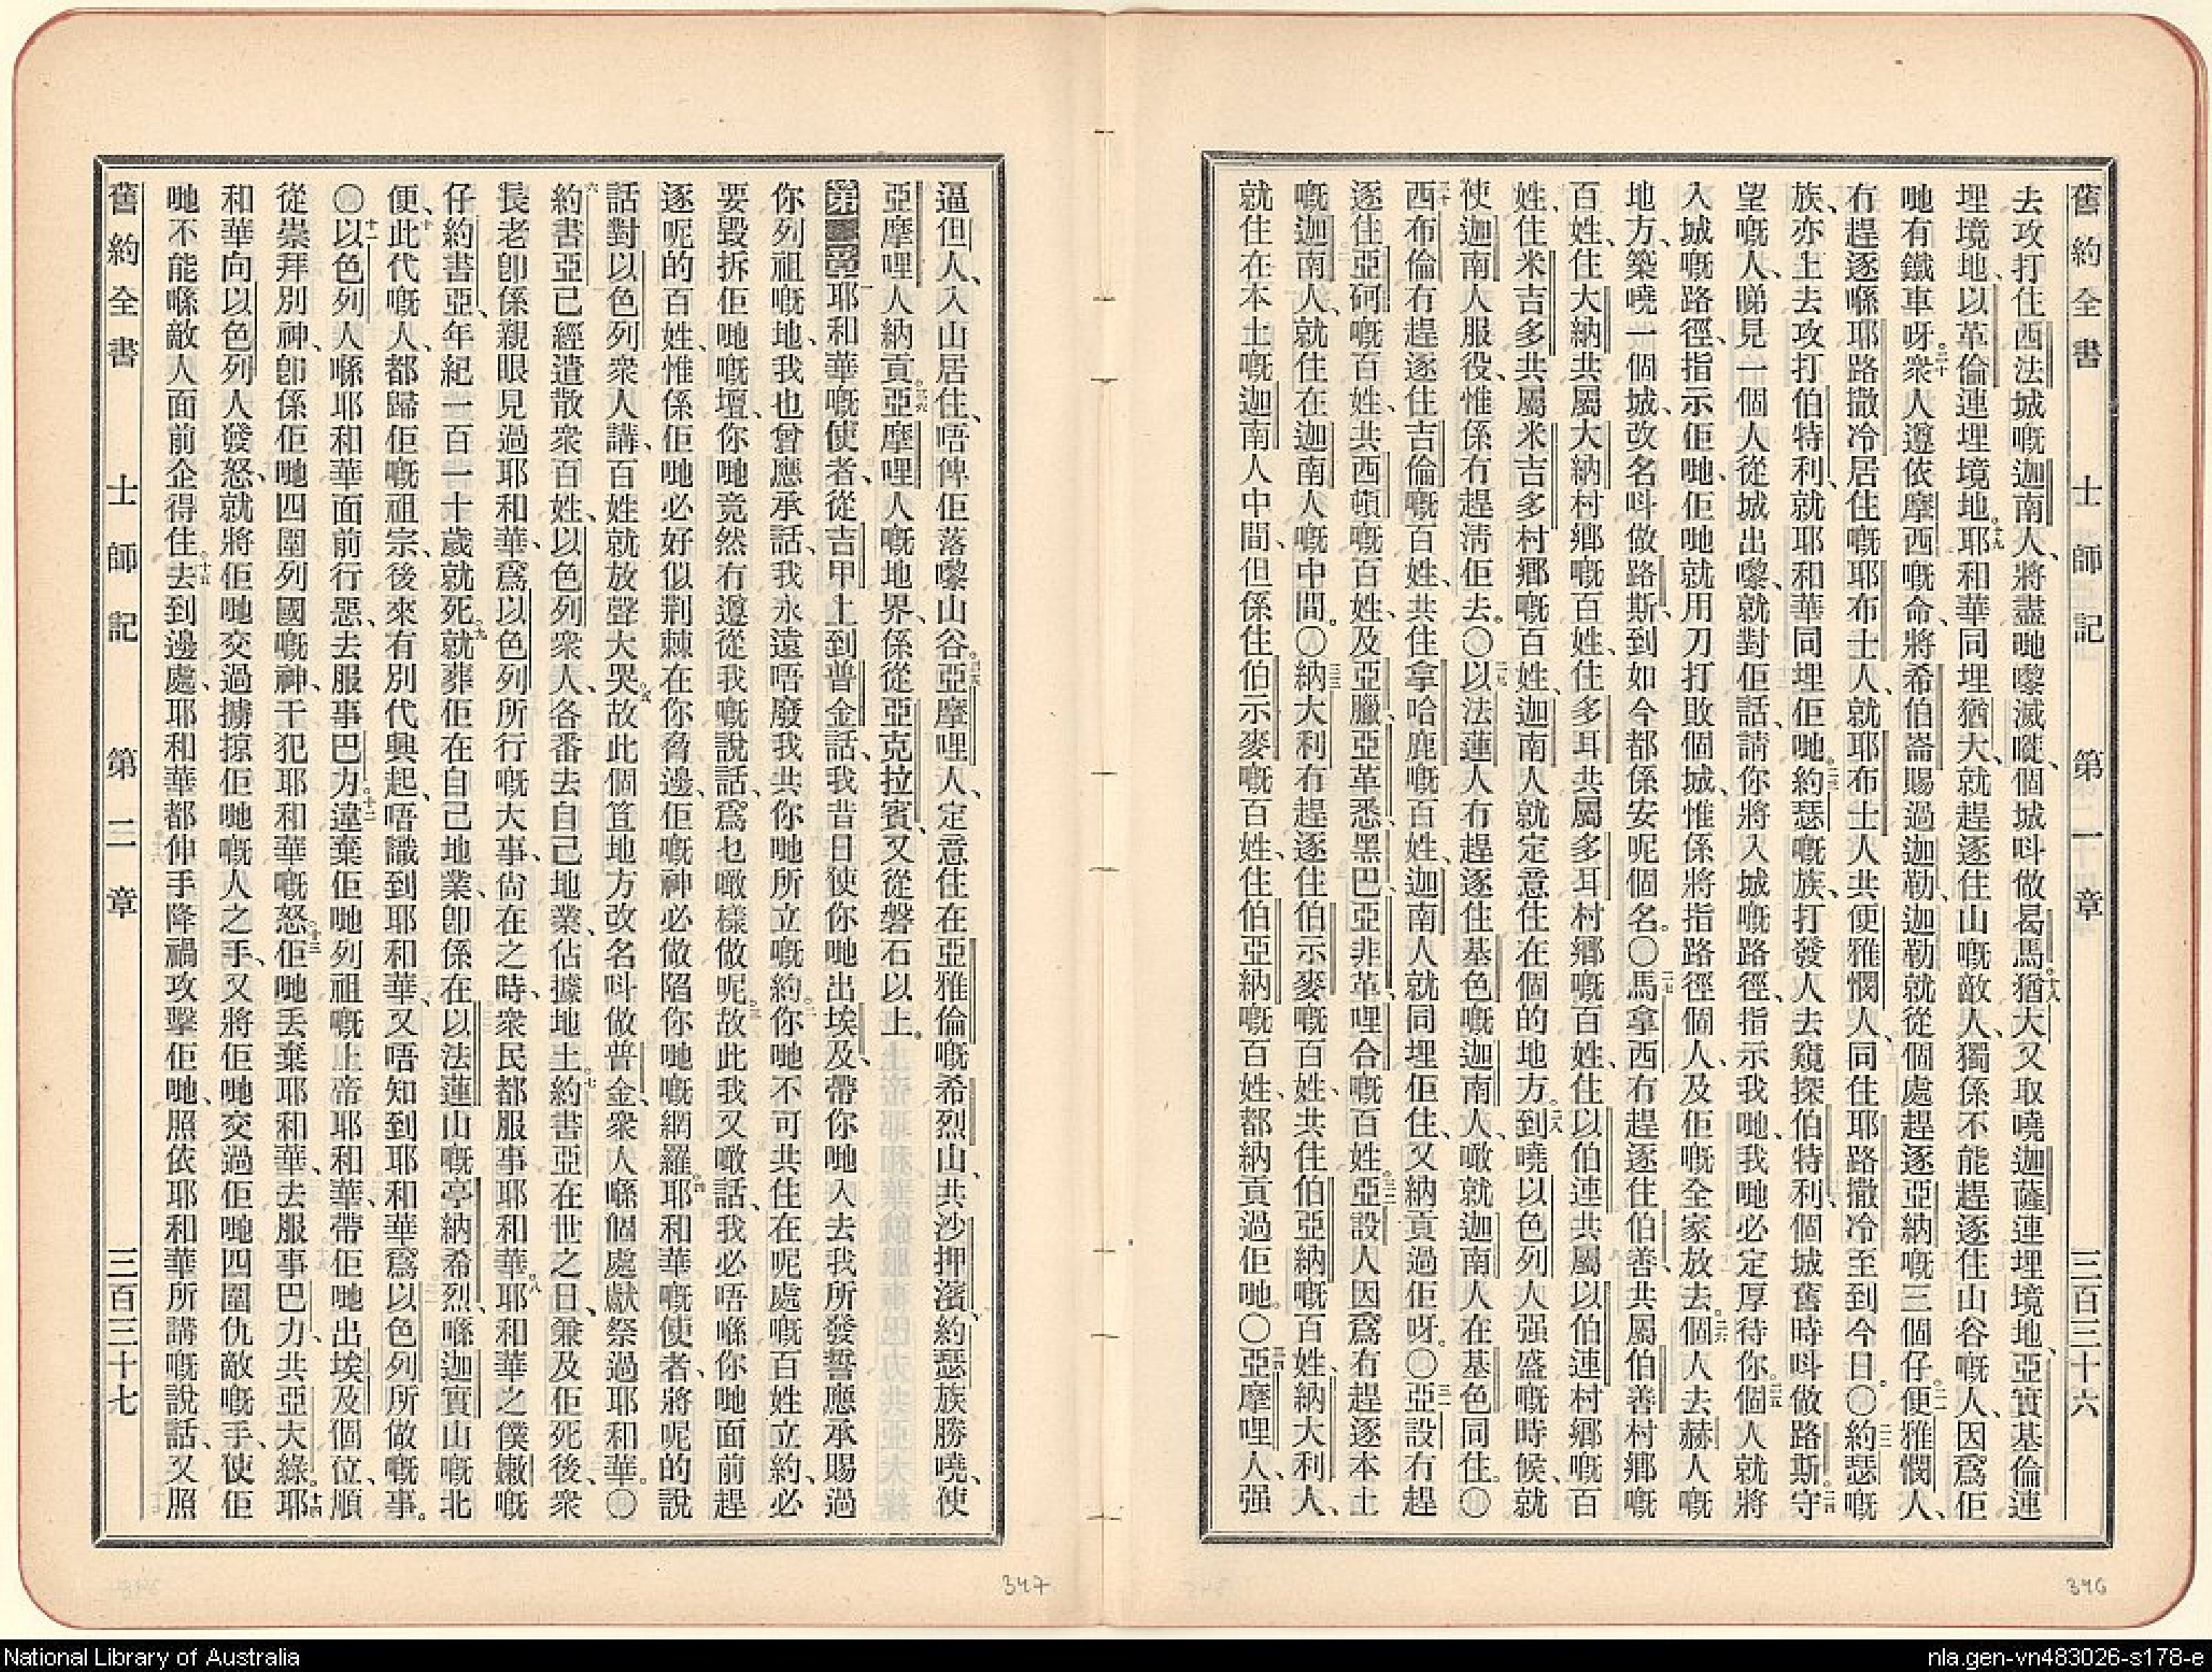 舊約全書　士師記　第一章　三百三十六
去攻打住西法城嘅迦南人、將盡哋嚟滅嘥、個城呌做曷馬。十八猶大又取嘵迦薩連埋境地、亞實基倫連
埋境地、以革倫連埋境地。十九耶和華同埋猶大、就趕逐住山嘅敵人、獨係不能趕逐住山谷嘅人、因爲佢
哋有鐵車呀。二十衆人遵依摩西嘅命、將希伯崙賜過迦勒、迦勒就從個處趕逐亞納嘅三個仔。二一便雅憫人、
冇趕逐喺耶路撒冷居住嘅耶布士人、就耶布士人共便雅憫人、同住耶路撒冷至到今日。〇二二約瑟嘅
族、亦上去攻打伯特利、就耶和華同埋佢哋。二三約瑟嘅族、打發人去窺探伯特利、個城舊時呌做路斯。二四守
望嘅人、睇見一個人從城出嚟、就對佢話、請你將入城嘅路徑、指示我哋、我哋必定厚待你。二五個人就將
入城嘅路徑、指示佢哋、佢哋就用刀打敗個城、惟係將指路徑個人、及佢嘅全家放去。二六個人去赫人嘅
地方、築嘵一個城、改名呌做路斯、到如今都係安呢個名。〇二七馬拿西冇趕逐住伯善、共屬伯善村鄕嘅
百姓、住大納共屬大納村鄕嘅百姓、住多耳共屬多耳村鄕嘅百姓、住以伯連共屬以伯連村鄕嘅百
姓、住米吉多共屬米吉多村鄕嘅百姓、迦南人就定意住在個的地方。二八到嘵以色列人强盛嘅時候、就
使迦南人服役、惟係冇趕淸佢去。〇二九以法蓮人冇趕逐住基色嘅迦南人、噉就迦南人在基色同住。〇
三十西布倫冇趕逐住吉倫嘅百姓、共住拿哈鹿嘅百姓、迦南人就同埋佢住、又納貢過佢呀。〇三一亞設冇趕
逐住亞硐嘅百姓、共西頓嘅百姓、及亞臘、亞革悉、黑巴、亞非革、哩合嘅百姓。三二亞設人因爲冇趕逐本土
嘅迦南人、就住在迦南人嘅中間。〇三三納大利冇趕逐住伯示麥嘅百姓、共住伯亞納嘅百姓、納大利人、
就住在本土嘅迦南人中間、但係住伯示麥嘅百姓、住伯亞納嘅百姓、都納貢過佢哋。〇三四亞摩哩人、强
346
逼但人、入山居住、唔俾佢落嚟山谷。三五亞摩哩人、定意住在亞雅倫嘅希烈山、共沙押濱、約瑟族勝嘵、使
亞摩哩人納貢。三六亞摩哩人嘅地界、係從亞克拉賓、又從磐石以上。
第二章 一耶和華嘅使者、從吉甲上到普金話、我昔日使你哋出埃及、帶你哋入去我所發誓應承賜過
你列祖嘅地、我也曾應承話、我永遠唔廢我共你哋所立嘅約。二你哋不可共住在呢處嘅百姓立約、必
要毀拆佢哋嘅壇、你哋竟然冇遵從我嘅說話、爲乜噉樣做呢。三故此我又噉話、我必唔喺你哋面前趕
逐呢的百姓、惟係佢哋必好似荆棘在你脅邊、佢嘅神必做陷你哋嘅網羅。四耶和華嘅使者、將呢的說
話對以色列衆人講、百姓就放聲大哭。五故此個笪地方改名呌做普金、衆人喺個處獻祭過耶和華。〇
六約書亞已經遣散衆百姓、以色列衆人、各番去自己地業、佔據地土。七約書亞在世之日、兼及佢死後、衆
長老卽係親眼見過耶和華、爲以色列所行嘅大事、尙在之時、衆民都服事耶和華。八耶和華之僕嫩嘅
仔約書亞、年紀一百一十歲就死。九就葬佢在自己地業、卽係在以法蓮山嘅亭納希烈、喺迦實山嘅北
便、十此代嘅人、都歸佢嘅祖宗、後來有別代興起、唔識到耶和華、又唔知到耶和華爲以色列所做嘅事。
〇十一以色列人喺耶和華面前行惡、去服事巴力。十二違棄佢哋列祖嘅上帝耶和華、帶佢哋出埃及個位、順
從崇拜別神、卽係佢哋四圍列國嘅神、干犯耶和華嘅怒。十三佢哋丢棄耶和華、去服事巴力、共亞大綠。十四耶
和華向以色列人發怒、就將佢哋交過擄掠佢哋嘅人之手、又將佢哋交過佢哋四圍仇敵嘅手、使佢
哋不能喺敵人面前企得住。十五去到邊處、耶和華都伸手降禍攻擊佢哋、照依耶和華所講嘅說話、又照
舊約全書　士師記　第二章　三百三十七
347
National Library of Australia
nla.gen-vn483026-s178-e